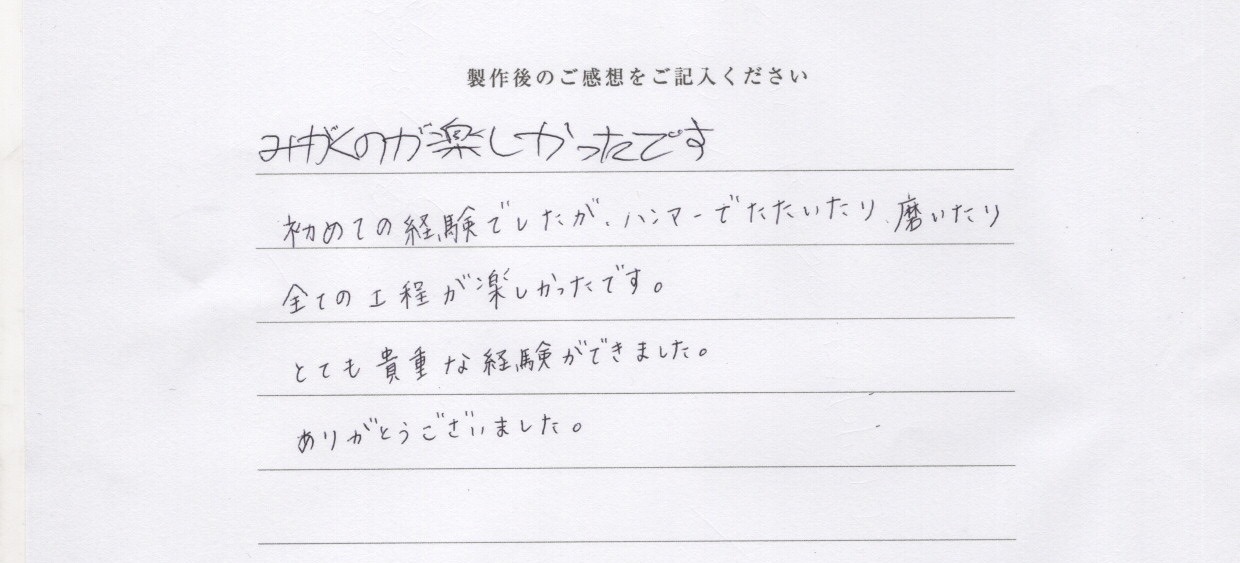 製作後のご感想をご記入ください
みがくのが楽しかったです
初めての経験でしたが、ハンマーでたたいたり、磨いたり
全ての工程が楽しかったです。
とても貴重な経験ができました。
ありがとうございました。